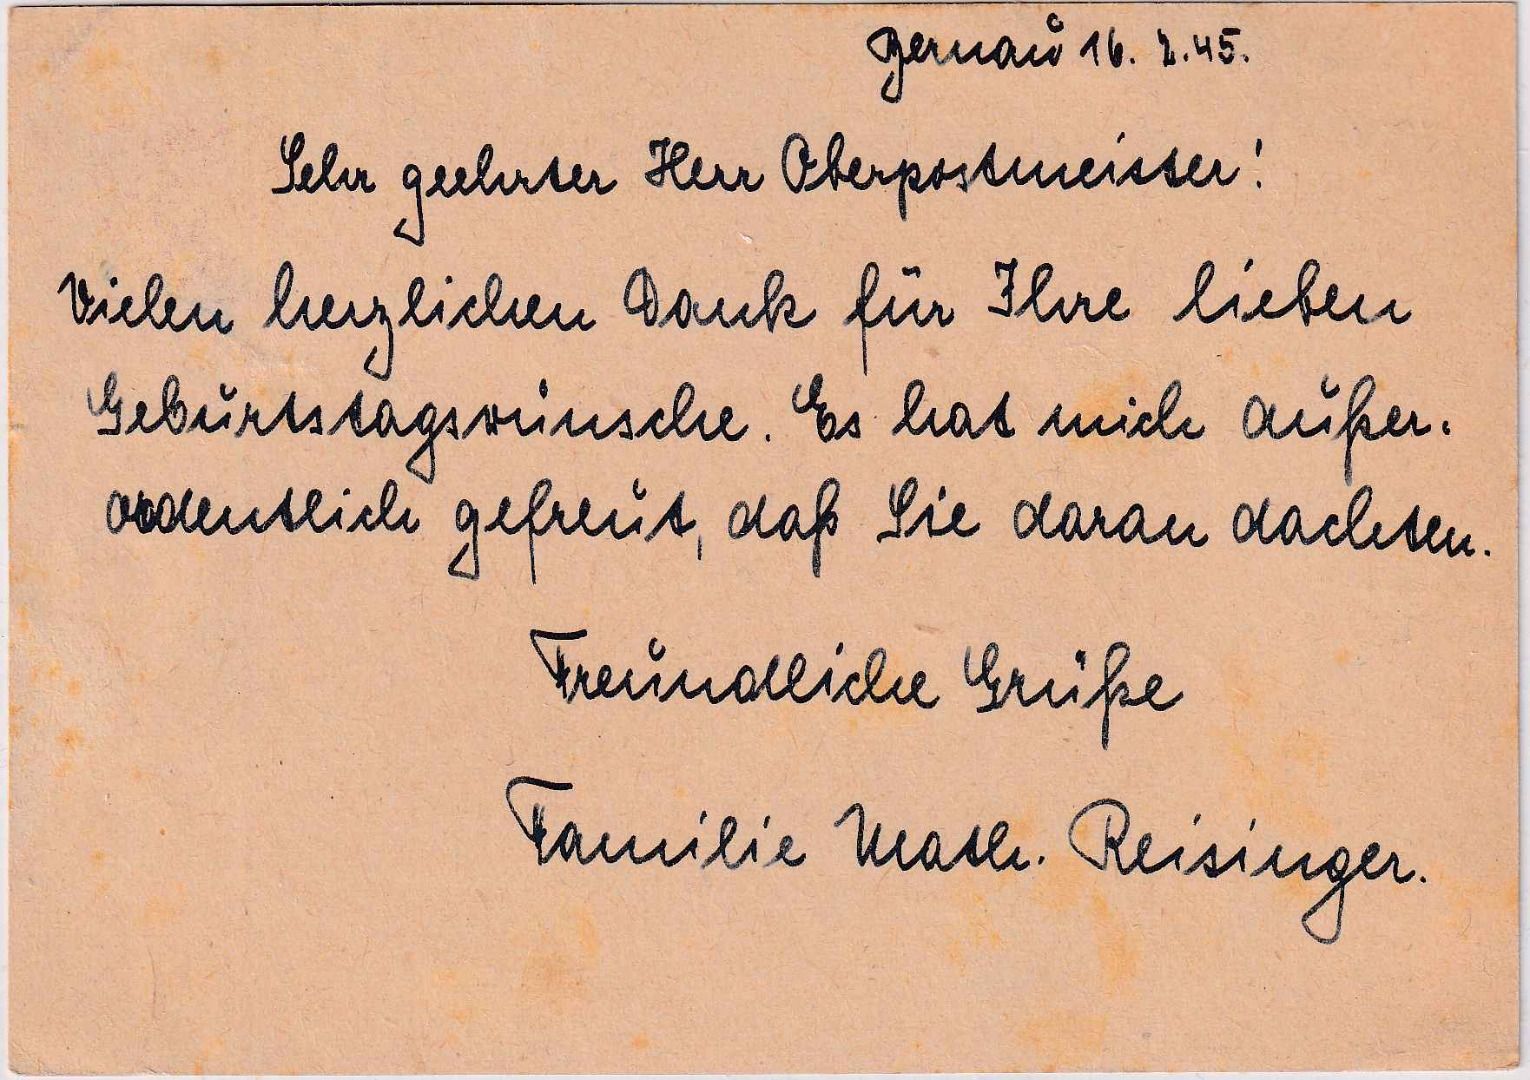 Bernau 16. 2. 45.
Sehr geehrter Herr Oberpostmeister!
Vielen herzlichen Dank für Ihre lieben
Geburtstagswünsche. Es hat mich außer-
ordentlich gefreut, daß Sie daran dachten.
Freundliche Grüße
Familie Math. Reisinger.